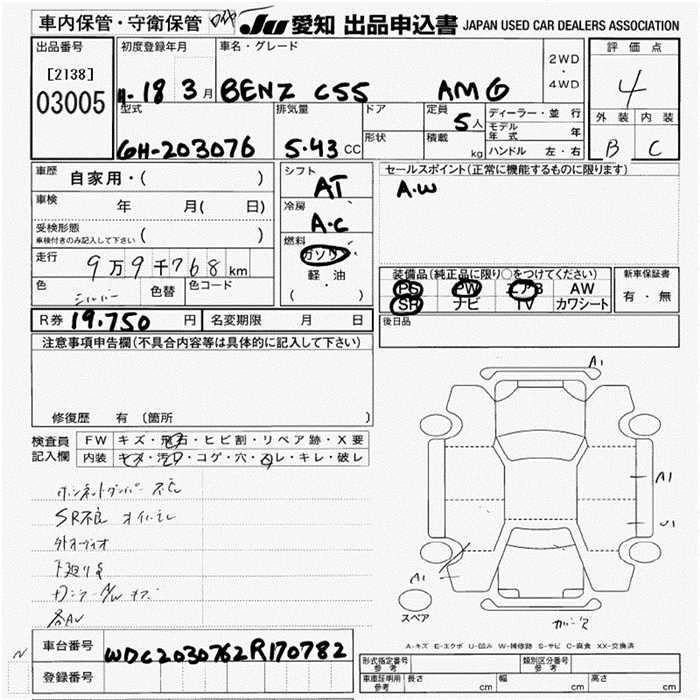 車内保管・守衛保管 JU 愛知 出品申込書 JAPAN USED CAR DEALERS ASSOCIATION
出品番号 初度登録年月 車名・グレード 2WD ・ 4WD 評価点
[2138]
03005 H-18 3月 BENZ C55 AMG 4
型式 排気量 ドア 定員 5人 ディーラー・並行 外装 内装
モデル年式 年
GH-203076 5.43 CC 形状 積載 kg ハンドル 左・右 B C
車歴 自家用・( ) シフト AT セールスポイント(正常に機能するものに限ります)
車検 年 月( 日) 冷房 A.C A.W
受検形態 車検付きのみ記入して下さい ( ) 燃料 ガソリン
走行 9万9千768km 軽油 装備品(純正品に限り○をつけてください) 新車保証書
色 シルバー 色替 色コード ( ) PS PW エアB AW 有・無
SR ナビ TV カワシート
R券 19.750円 名変期限 月 日 後日品
注意事項申告欄(不具合内容等は具体的に記入して下さい)
A1
修復歴 有(箇所
検査員記入欄 FW キズ・飛石・ヒビ割・リペア跡・X要
内装 キズ・汚レ・コゲ・穴・スレ・キレ・破レ
A1
SR不良 オイルモレ
外オーディオ
下廻りS
A1
各AU
スペア
A-キズ E-エクボ U-凹み W-補修跡 S-サビ C-腐食 XX-交換済
車台番号 WDC2030762R170782
登録番号
形式指定番号 参考 類別区分番号 参考
車庫証明用 参考 長さ cm 幅 cm 高さ cm